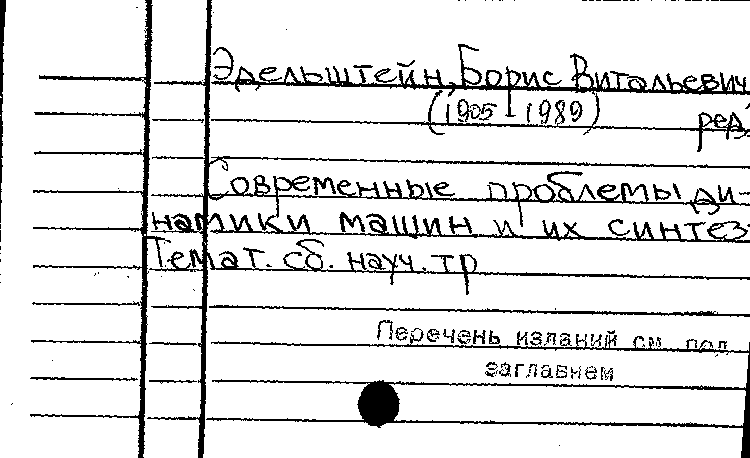 Эдельштейн, Борис Витальевич,
(1905-1989) ред.
Современные проблемы ди-
намики машин и их синтез
Темат. сб. науч. тр
Перечень изданий см. под
заглавием